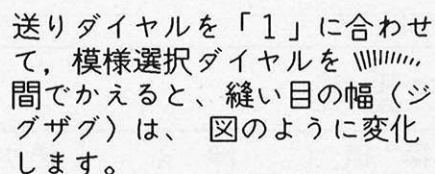 送りダイヤルを「1」に合わせ
て，模様選択ダイヤルを
間でかえると、縫い目の幅（ジ
グザグ）は、 図のように変化
します。